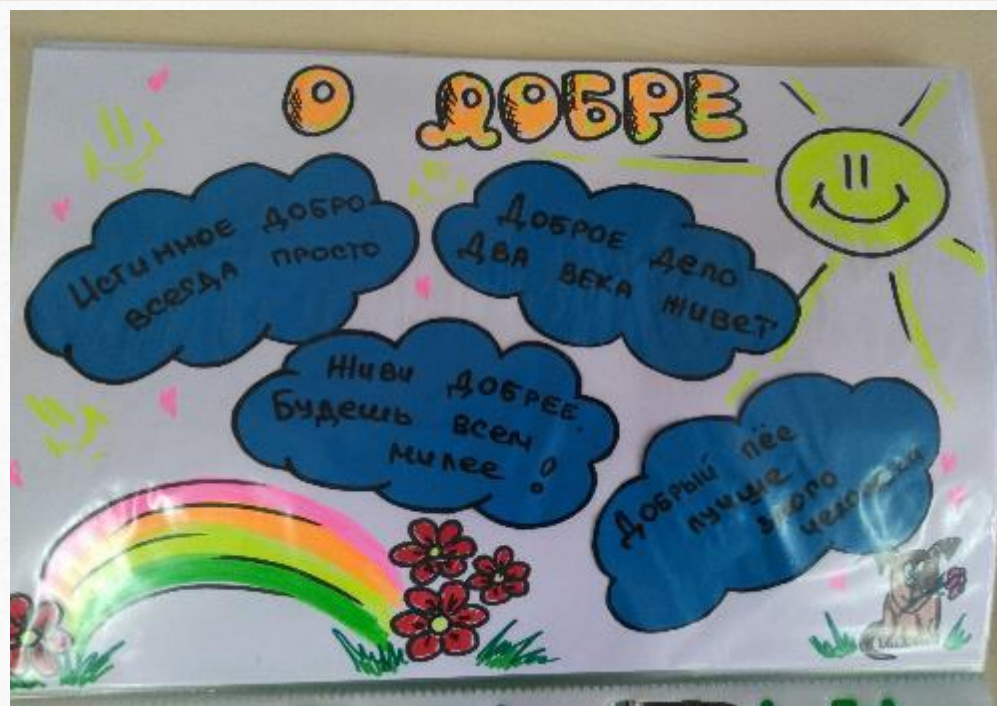 О ДОБРЕ
Истинное добро
всегда просто
Доброе дело
Два века живет
Живи добрее
Будешь всем
милее!
Добрый пёс
лучше
злого
человека